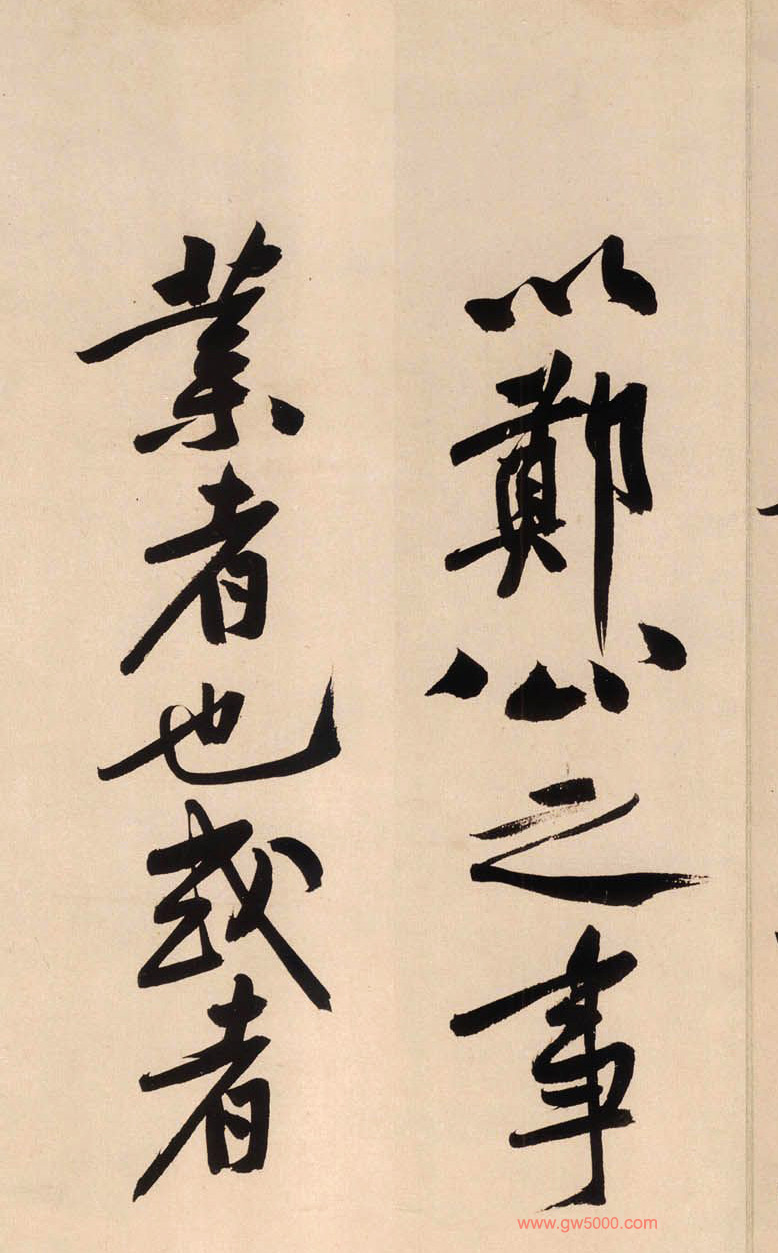 以鄭公之事
業者也或者
www.gw5000.com